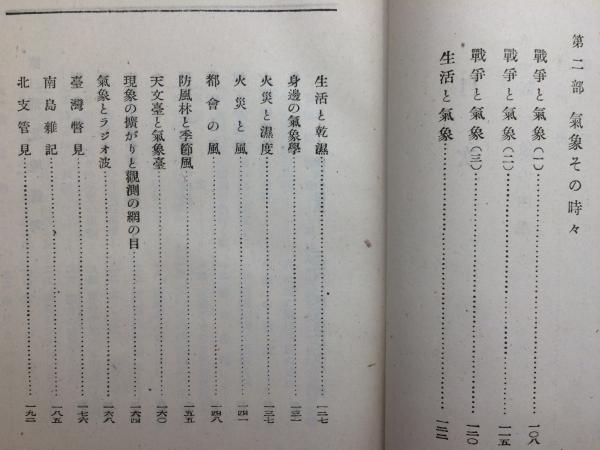 第二部 氣象その時々
戰爭と氣象(一)……一〇八
戰爭と氣象(二)……一一五
戰爭と氣象(三)……一二〇
生活と氣象……一二三
生活と乾濕……一二七
身邊の氣象學……一三一
火災と濕度……一三七
火災と風……一四一
都會の風……一四八
防風林と季節風……一五五
天文臺と氣象臺……一六〇
現象の擴がりと觀測の網の目……一六四
氣象とラジオ波……一六八
臺灣瞥見……一七六
南島雜記……一八五
北支管見……一九二